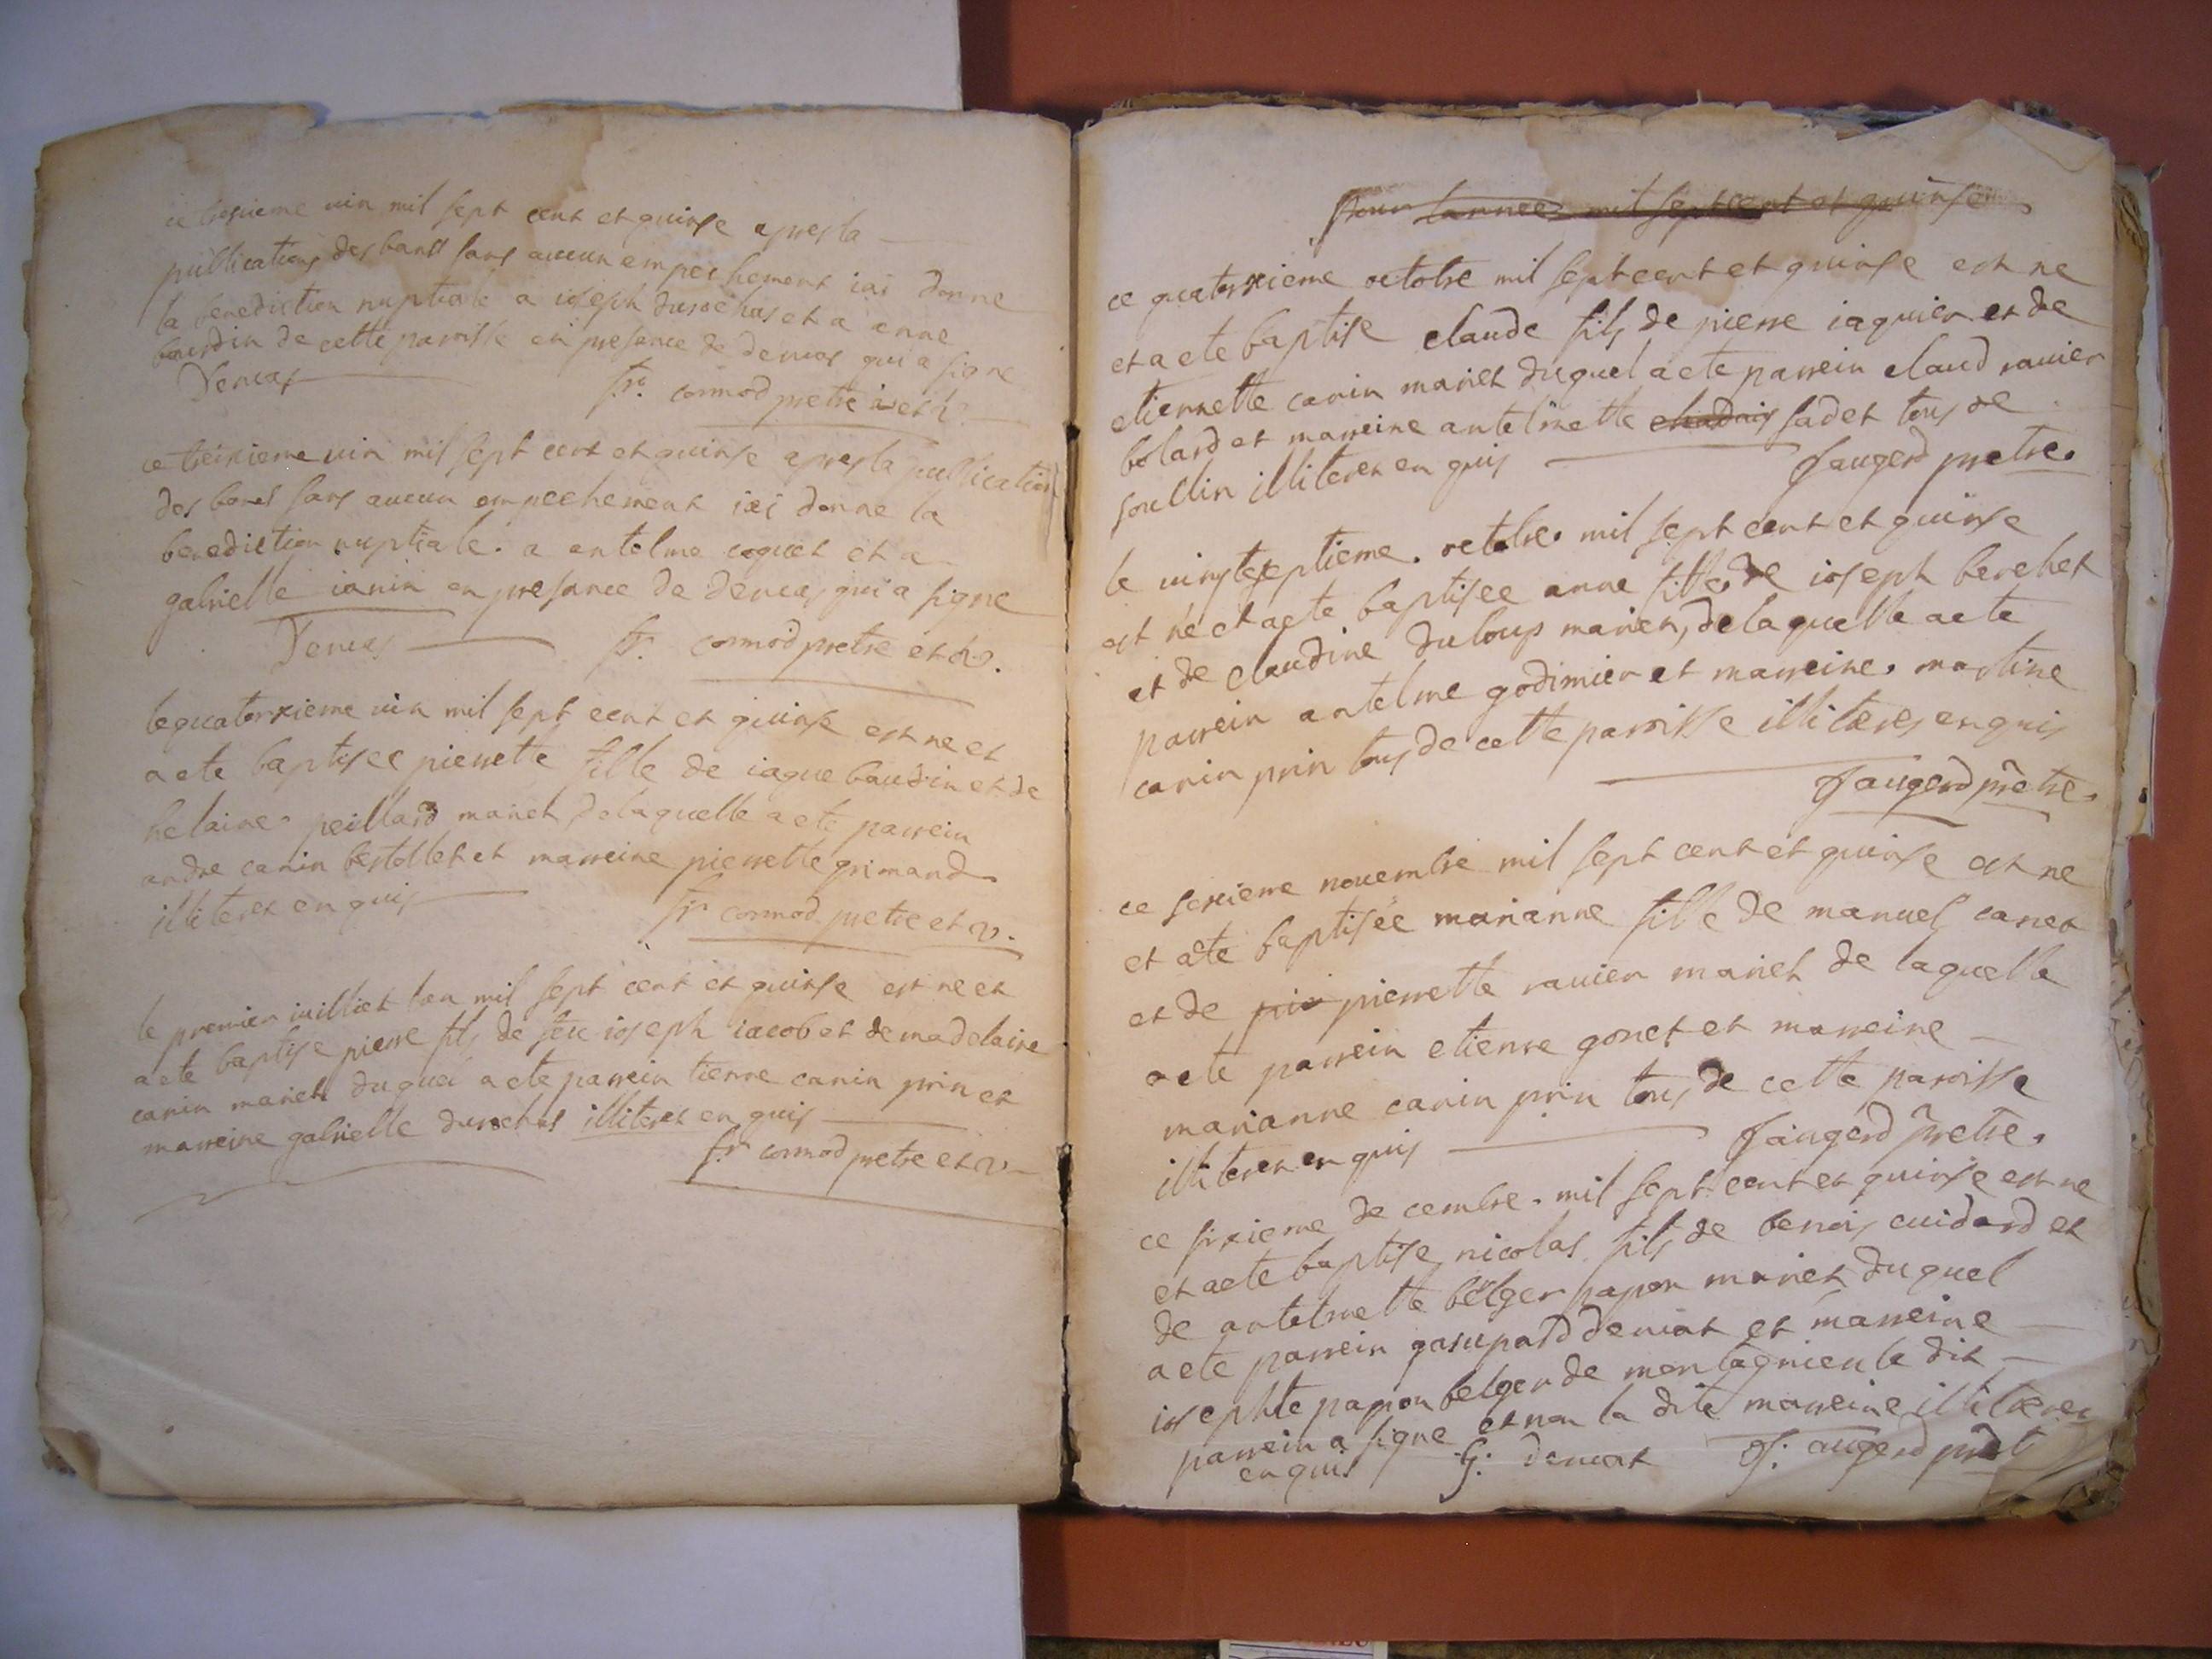 ce iuin mil sept cent et quinse apres la
publications des bans sans aucun empechement iai donne
la benediction nuptiale a ioseph durochas et a anne
bourdin de cette paroisse en presance de devias qui a signe
fr. cormod pretre et v.
ce treixieme iuin mil sept cent et quinse apres la publication
des bans sans aucun empechement iai donne la
benediction nuptiale. a antelme et a
gabrielle ianin en presance de qui a signe
fr. cormod pretre et v.
le quatorxieme iuin mil sept cent et quinse est ne et
a ete baptisee pierrette fille de iaque baudin et de
helaine peillard mariet de laquelle a ete parrein
andre canin bertollet et marreine pierrette grimand
illiteret enquis
fr cormod pretre et v.
le premier iuilliet lan mil sept cent et quinse est ne et
a ete baptise pierre fils de feu ioseph iacob et de madelaine
canin mariet duquel a ete parrein tienne canin prin et
marreine gabrielle durochas illiteret enquis
fr cormod pretre et v
pour lannee mil sept cent et quinse
ce quatorxieme octobre mil sept cent et quinse est ne
et a ete baptise claude fils de pierre iaquier et de
etiennette canin mariet duquel a ete parrein claud ravier
bolard et marreine antelmette sadet tous de
souclin illiteret enquis
J augerd pretre.
le vingteseptieme. octobre. mil sept cent et quinse
est ne et a ete baptisee anne fille de ioseph berchet
et de claudine duloup mariet, de laquelle a ete
parrein antelme godimier et marreine. martine
canin prin tous de cette paroisse illiteres enquis
J augerd pretre.
ce sexieme novembre mil sept cent et quinse est ne
et a ete baptisée marianne fille de manuel carret
et de pie pierrette ravier mariet de laquelle
a ete parrein etienne gonet et marreine
marianne canin prin tous de cette paroisse
illiteret enquis
J augerd pretre.
ce sixieme decembre. mil sept cent et quinse est ne
et a ete baptise nicolas fils de benois cuidard et
de antelmette belger papon mariet, duquel
a ete parrein gasupard deviat et marreine
iosephte papon belger de montagnieu le dit
parrein a signe et non la dite marreine illiteres
enquis G: deviat J: augerd